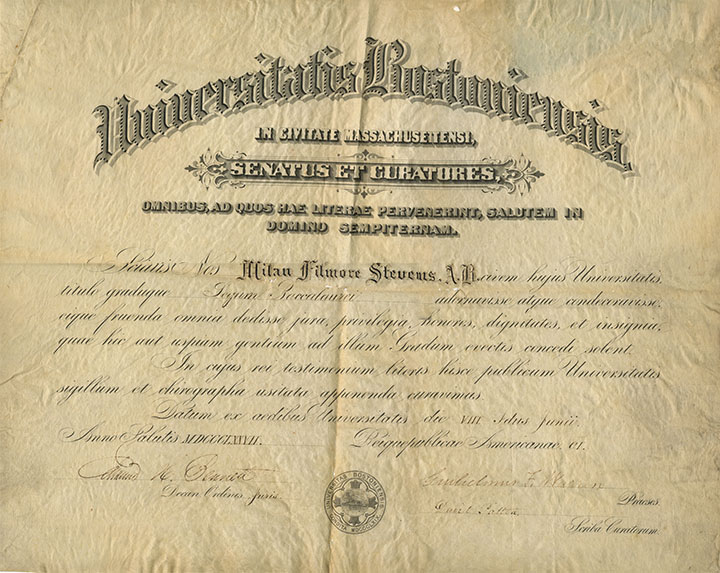 Universitatis Bostoniensis,
IN CIVITATE MASSACHUSETTENSI,
SENATUS ET CURATORES,
OMNIBUS, AD QUOS HAE LITERAE PERVENERINT, SALUTEM IN
DOMINO SEMPITERNAM.
Sciatis Nos Milan Filmore Stevens, A.B. civem hujus Universitatis,
titulo graduque Legum Baccalaurei adornavisse atque condecoravisse,
eique fruenda omnia dedisse jura, privilegia, honores, dignitates, et insignia,
quae hic aut uspiam gentium ad illum Gradum evectis concedi solent.
In cujus rei testimonium literis hisce publicum Universitatis
sigillum et chirographa usitata apponenda curavimus.
Datum ex aedibus Universitatis die VIII Idus junii
Anno Salutis MDCCCLXXVII. Reique publicae Americanae, CI.
Edmund H. Bennett
Decan Ordinis Juris.
Gulielmus F. Warren
Praeses.
David Patten
Scriba Curatorum.
UNIVERSITAS BOSTONIENSIS
CONDITA MDCCCLXIX